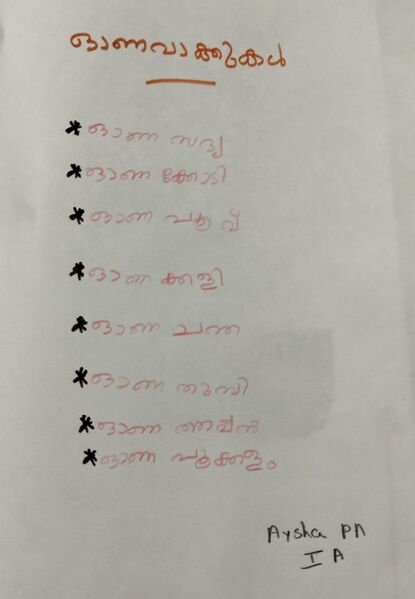 ഓണവാക്കുകൾ
* ഓണ സദ്യ
* ഓണ ക്കോടി
* ഓണ പൂവ്
* ഓണ ക്കളി
* ഓണ ചന്ത
* ഓണ തുമ്പി
* ഓണ അപ്പൻ
* ഓണ പൂക്കളം
Aysha PA
I A